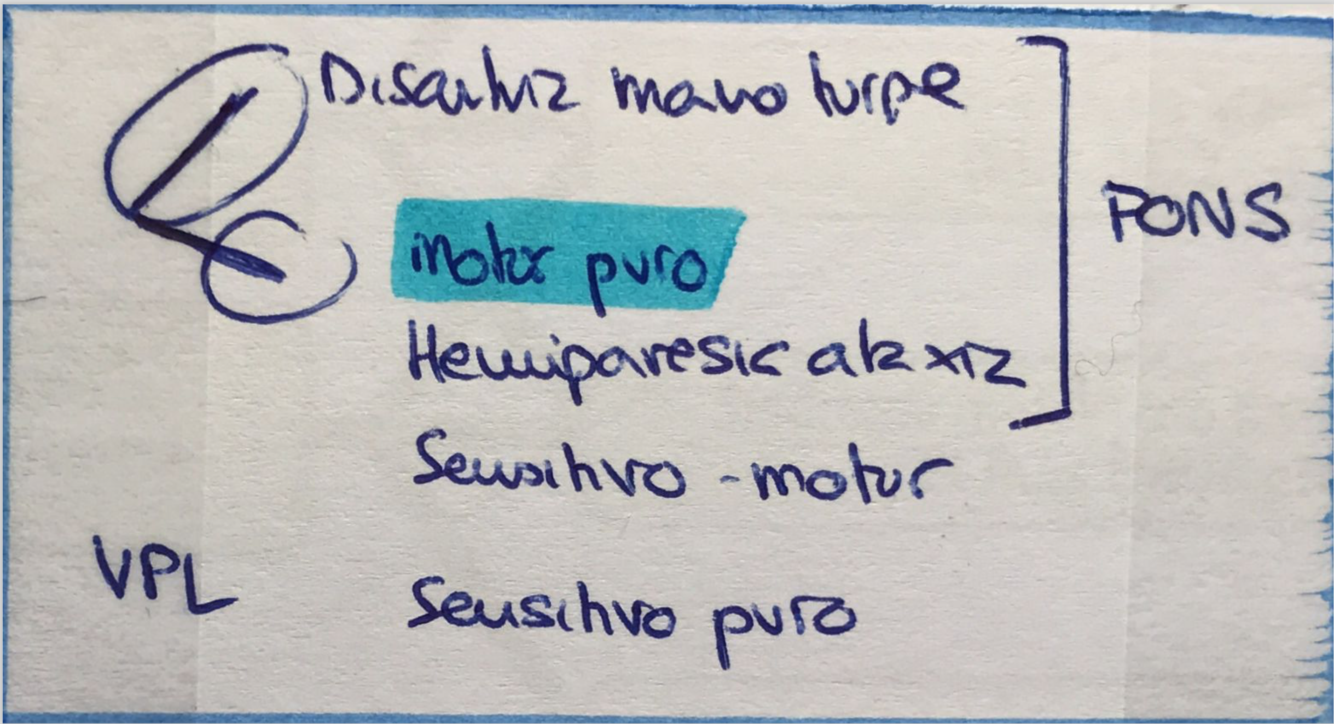 Disartria mano torpe
PONS
Motor puro
Hemiparesia ataxia
Sensitivo - motor
VPL
Sensitivo puro